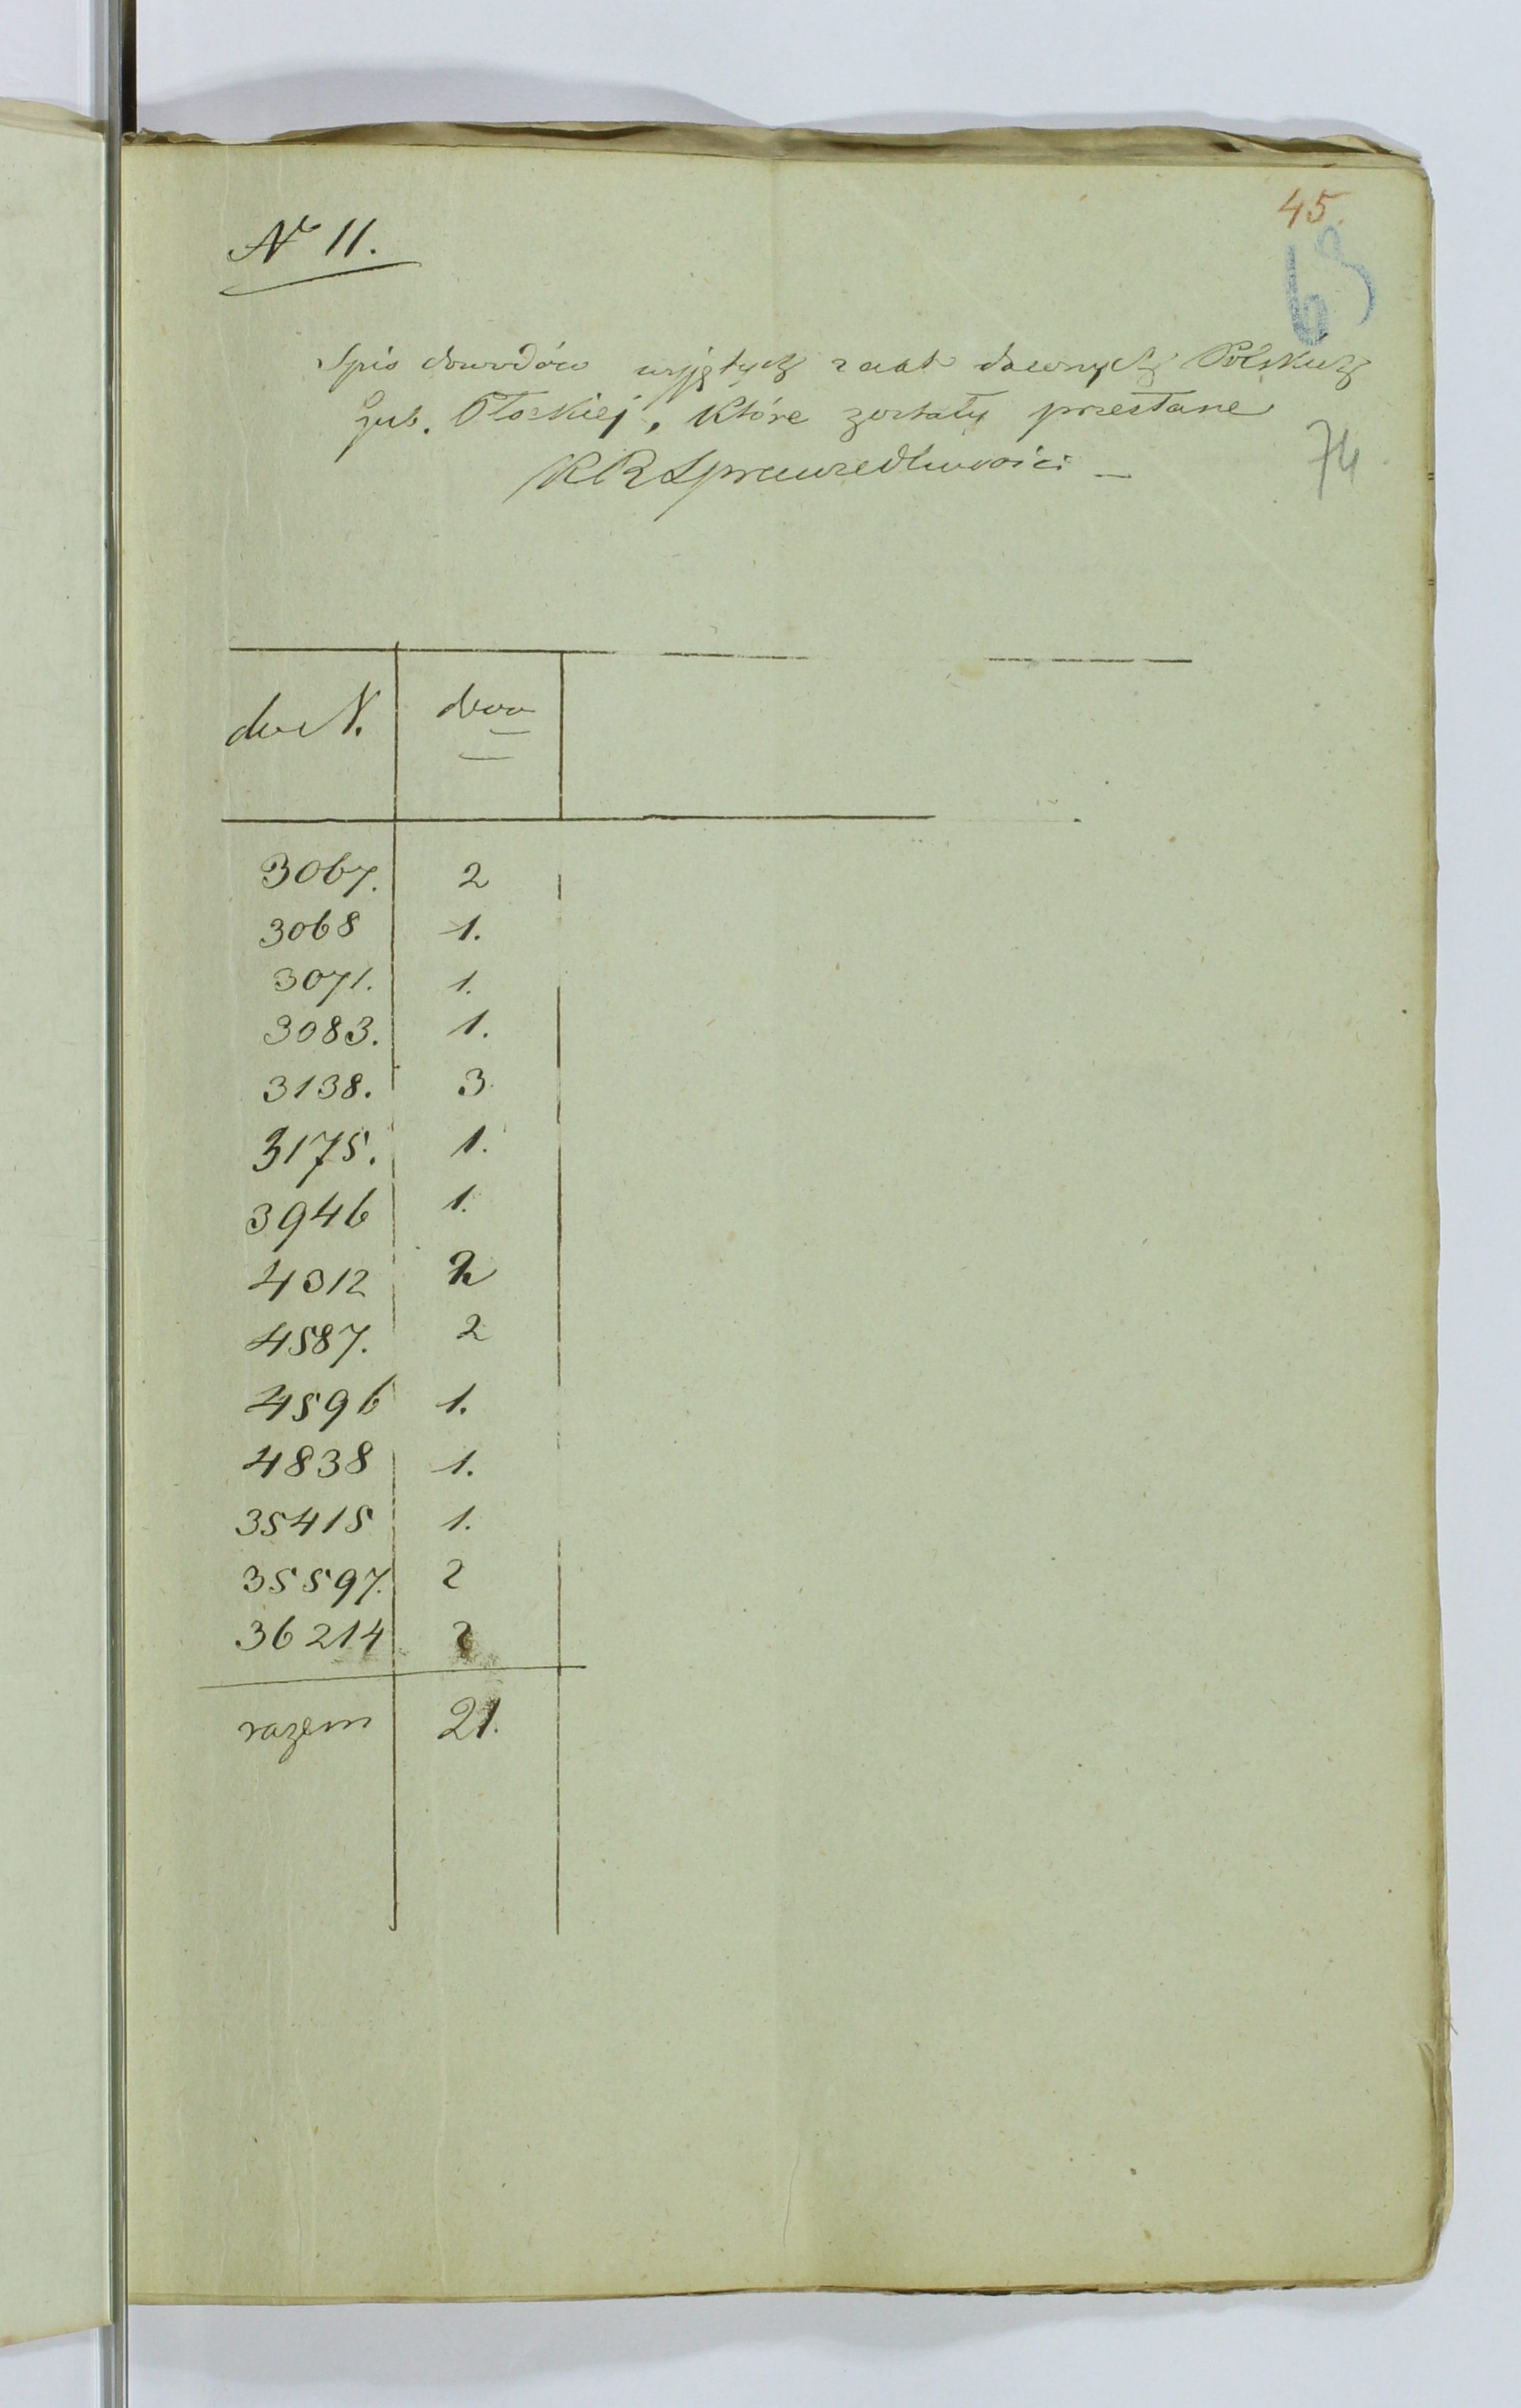 45.
N 11.
69
Spis dowodów wyjętych z akt dawnych Polskich
Gub. Płockiej, które zostały przesłane
KRSprawiedliwości —
74
do N.
3067. 2
3068 1.
3071. 1.
3083. 1.
3138. 3.
3175. 1.
3946 1.
4312 2
4587. 2
4596 1.
4838 1.
35415 1.
35597. 2
36214 2
razem 21.